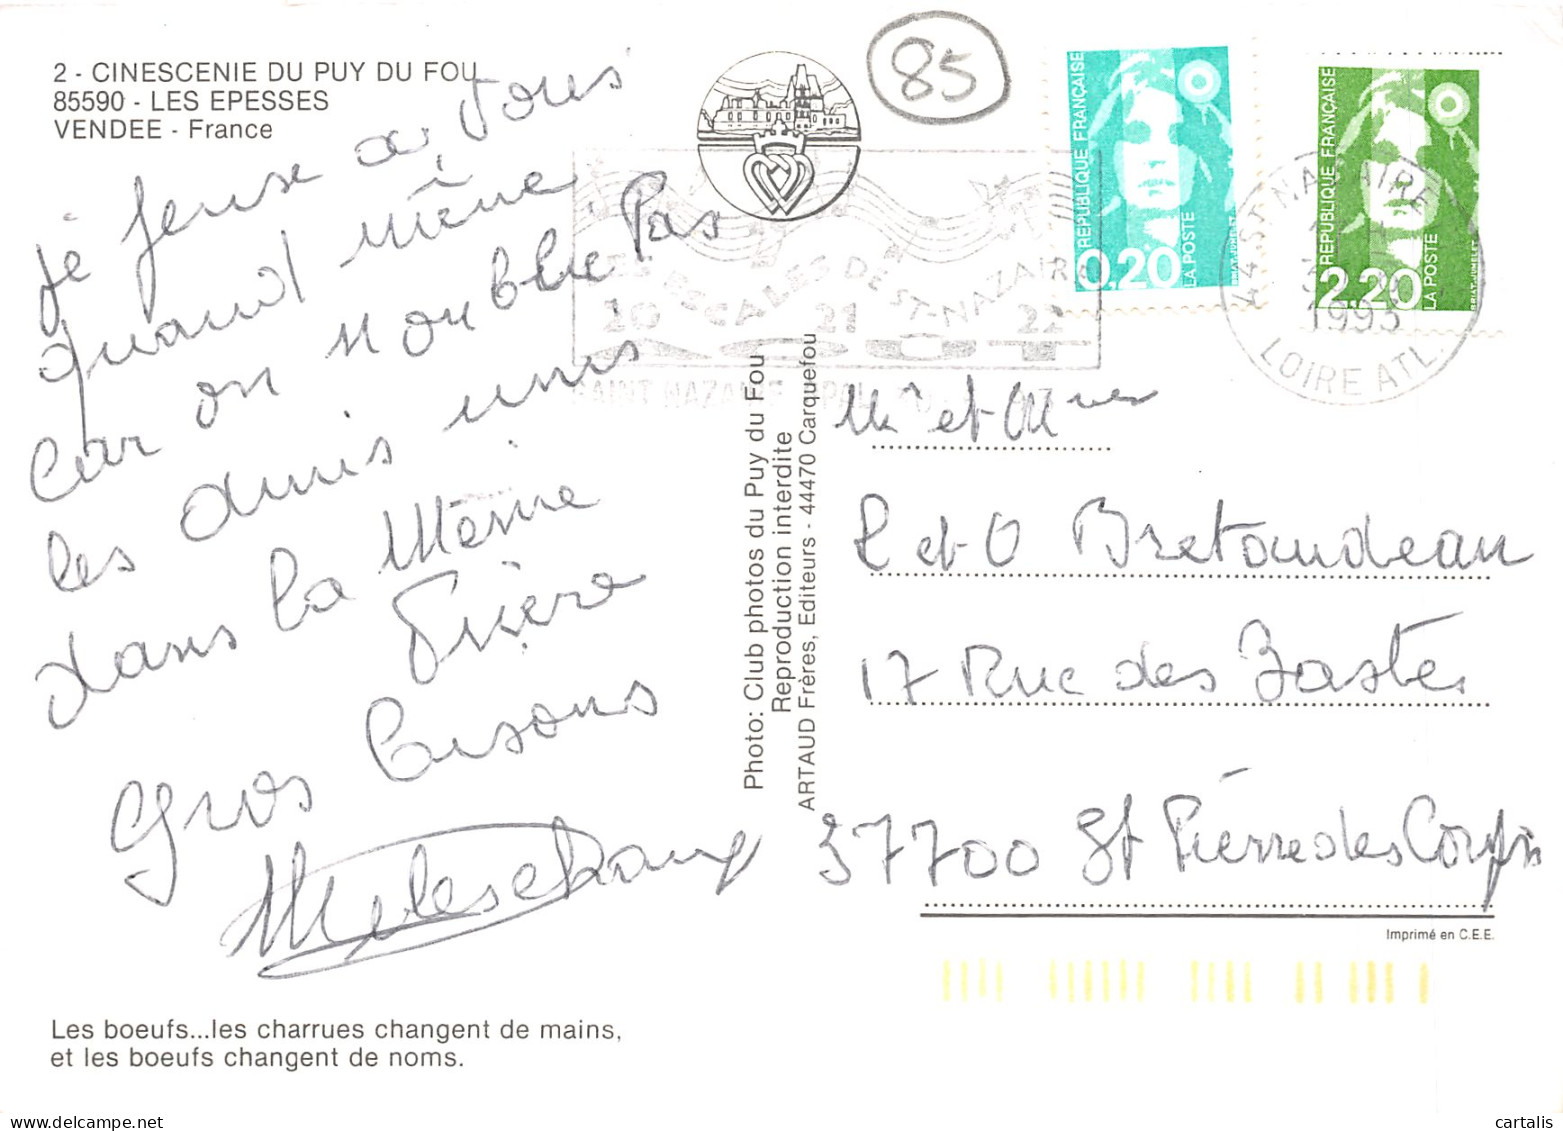 2 - CINESCENIE DU PUY DU FOU
85590 - LES EPESSES
VENDEE - France
85
je pense à vous
quand même
car on n'oublie pas
les amis unis
dans la même
Prière
Gros bisons
REPUBLIQUE FRANÇAISE
0,20
LA POSTE
BRIAT-JUMELET
REPUBLIQUE FRANÇAISE
2,20
LA POSTE
BRIAT-JUMELET
44 ST NAZAIRE
1993
LOIRE ATL.
LES ESCALES DE ST-NAZAIRE
20 21 22
SAINT NAZAIRE
Photo: Club photos du Puy du Fou
Reproduction interdite
ARTAUD Frères, Editeurs - 44470 Carquefou
Mr et Mme
et O Bretaudeau
17 Rue des
37700 St Pierre des Corps
Imprimé en C.E.E.
Les boeufs...les charrues changent de mains,
et les boeufs changent de noms.
cartalis